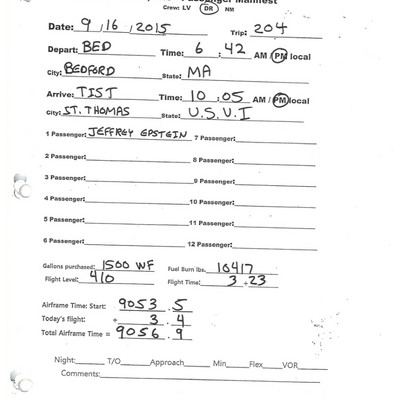 Passenger Manifest
Crew: LV DR NM
Date: 9 , 16 , 2015 Trip: 204
Depart: BED Time: 6 : 42 AM / PM local
City: BEDFORD State: MA
Arrive: TIST Time: 10 : 05 AM / PM local
City: ST. THOMAS State: U.S.V.I
1 Passenger: JEFFREY EPSTEIN 7 Passenger:
2 Passenger: 8 Passenger:
3 Passenger: 9 Passenger:
4 Passenger: 10 Passenger:
5 Passenger: 11 Passenger:
6 Passenger: 12 Passenger:
Gallons purchased: 1500 WF Fuel Burn lbs. 10417
Flight Level: 410 Flight Time: 3 + 23
Airframe Time: Start: 9053 . 5
Today's flight: + 3 . 4
Total Airframe Time = 9056 . 9
Night: T/O Approach Min Flex VOR
Comments: